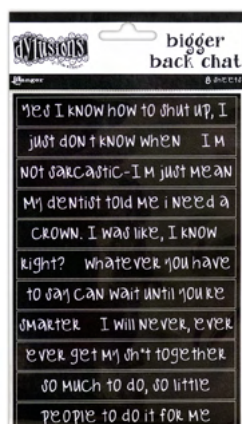 dylusions
bigger
back chat
Ranger
8 sheets
yes I know how to shut up, I
just don t know when I m
not sarcastic-I m just mean
My dentist told me i need a
crown. I was like, I know
right? whatever you have
to say can wait until you re
smarter I will never, ever
ever get my sh*t together
so much to do, so little
people to do it for me